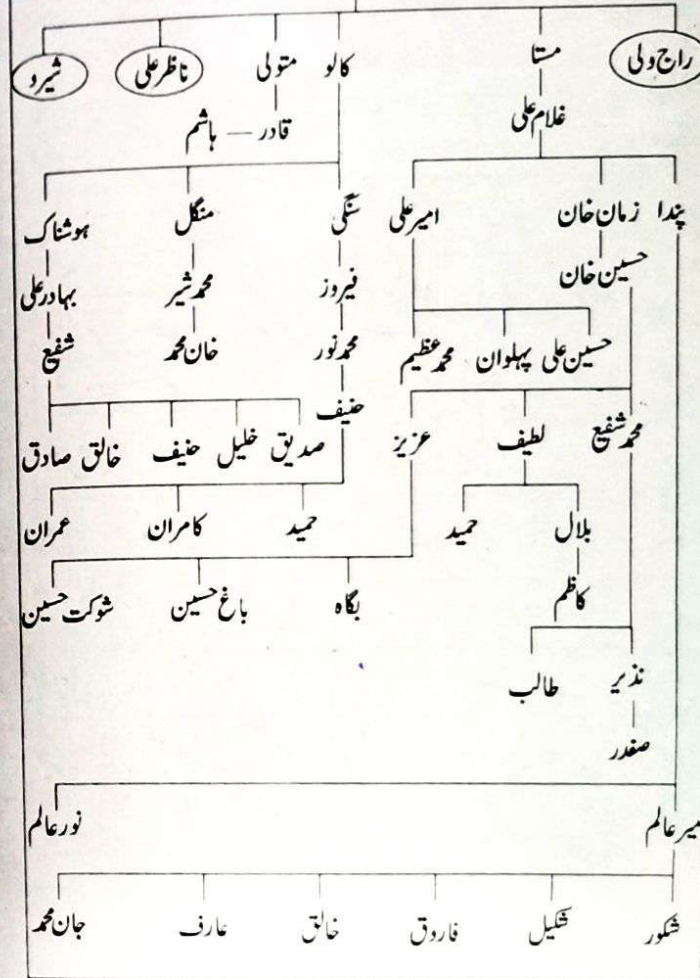 راج ولی مستا کالو متولی ناظر علی شیرو
غلام علی قادر — ہاشم
پندا زمان خان امیر علی سنگی منگل ہوشناک
حسین خان فیروز محمد شیر بہادر علی
حسین علی پہلوان محمد عظیم محمد نور خان محمد شفیع
حنیف
محمد شفیع لطیف عزیز صدیق خلیل حنیف خالق صادق
بلال حمید حمید کامران عمران
کاظم بگاہ باغ حسین شوکت حسین
نذیر طالب
صفدر
میر عالم نور عالم
شکور شکیل فاروق خالق عارف جان محمد